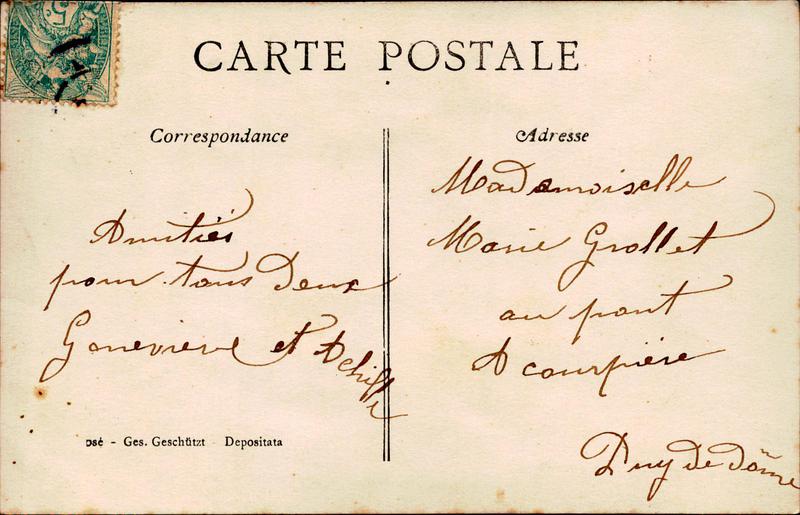 5c
CARTE POSTALE
Correspondance
Amitiés
pour tous Deux
Genevieve et Achille
osé - Ges. Geschützt - Depositata
Adresse
Mademoiselle
Marie Grollet
au pont
A courpière
Puy De Dôme